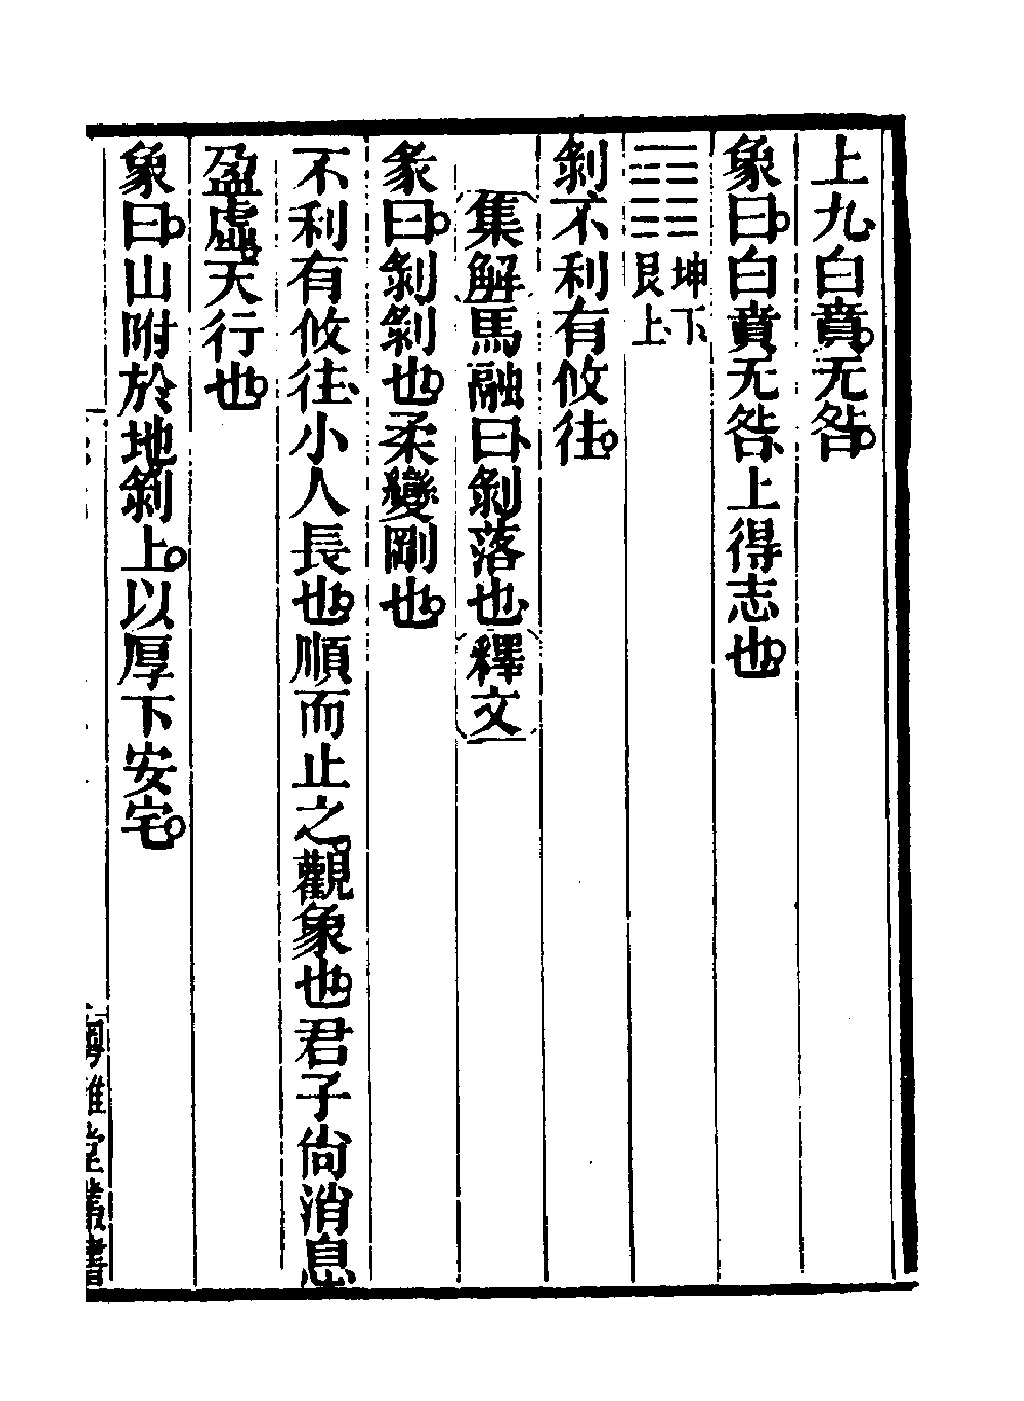 上九白賁无咎
象曰白賁无咎上得志也
䷖坤下艮上
剝不利有攸往
集解馬融曰剝落也釋文
彖曰剝剝也柔變剛也
不利有攸往小人長也順而止之觀象也君子尙消息
盈虛天行也
象曰山附於地剝上以厚下安宅
粵雅堂叢書